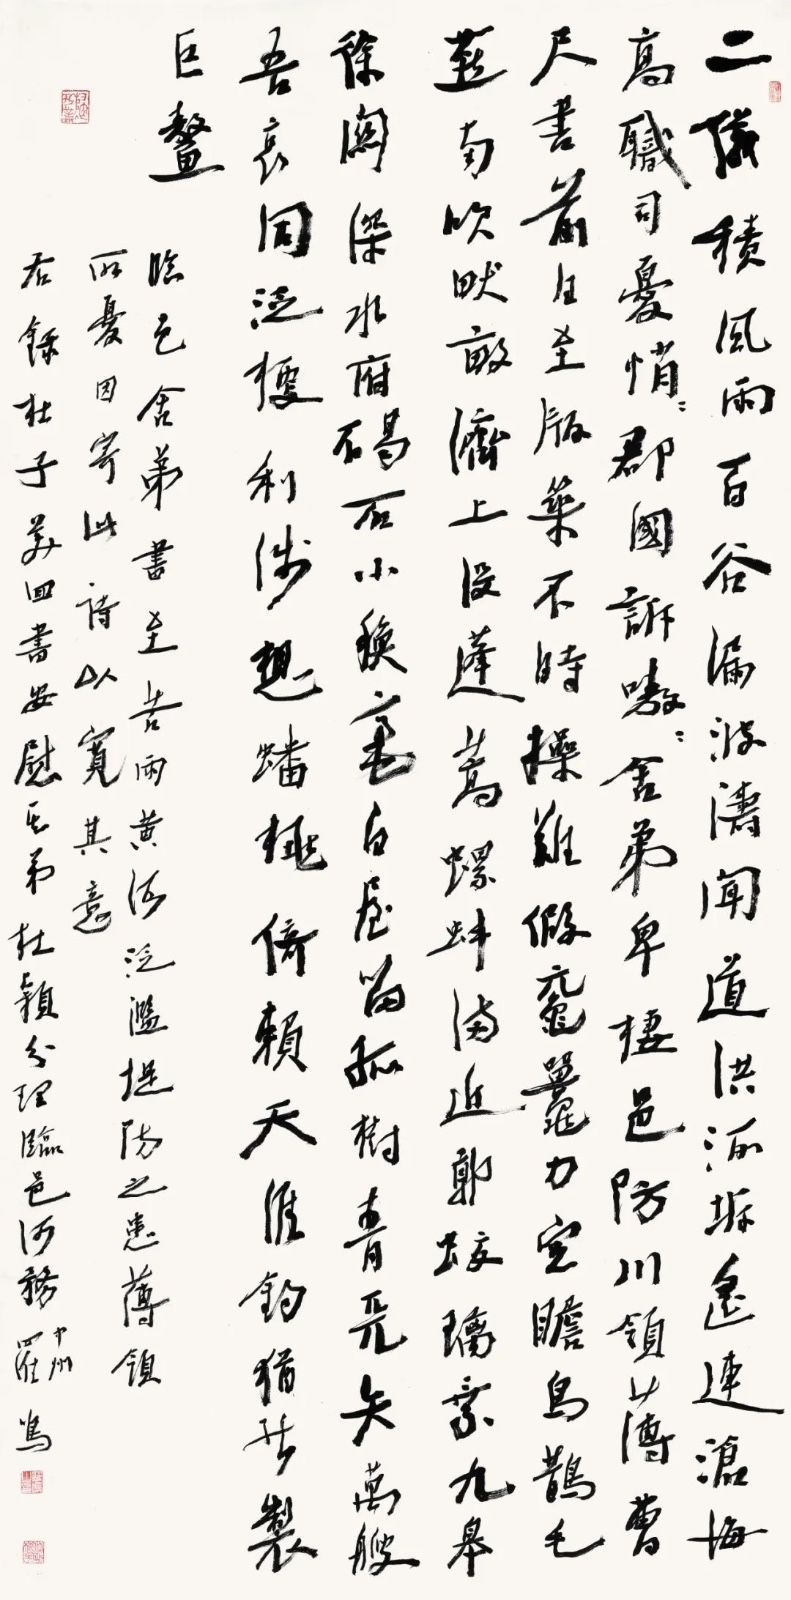 二儀積風雨百谷漏波濤聞道洪河坼遙連滄海
高職司憂悄々郡國訴嗷々舍弟卑棲邑防川領簿曹
尺書前日至版築不時操難假黿鼉力空瞻烏鵲毛
燕南吹畎畝濟上沒蓬蒿螺蚌滿近郭蛟螭乘九皋
徐關深水府碣石小秋毫白屋留孤樹青天矢萬艘
吾衰同泛梗利涉想蟠桃倚賴天涯釣猶能製
巨鰲
臨邑舍弟書至苦雨黃河泛濫堤防之患薄領
所憂因寄此詩以寬其意
右錄杜子美回書安慰其弟杜穎分理臨邑河務 中州
羅鳴